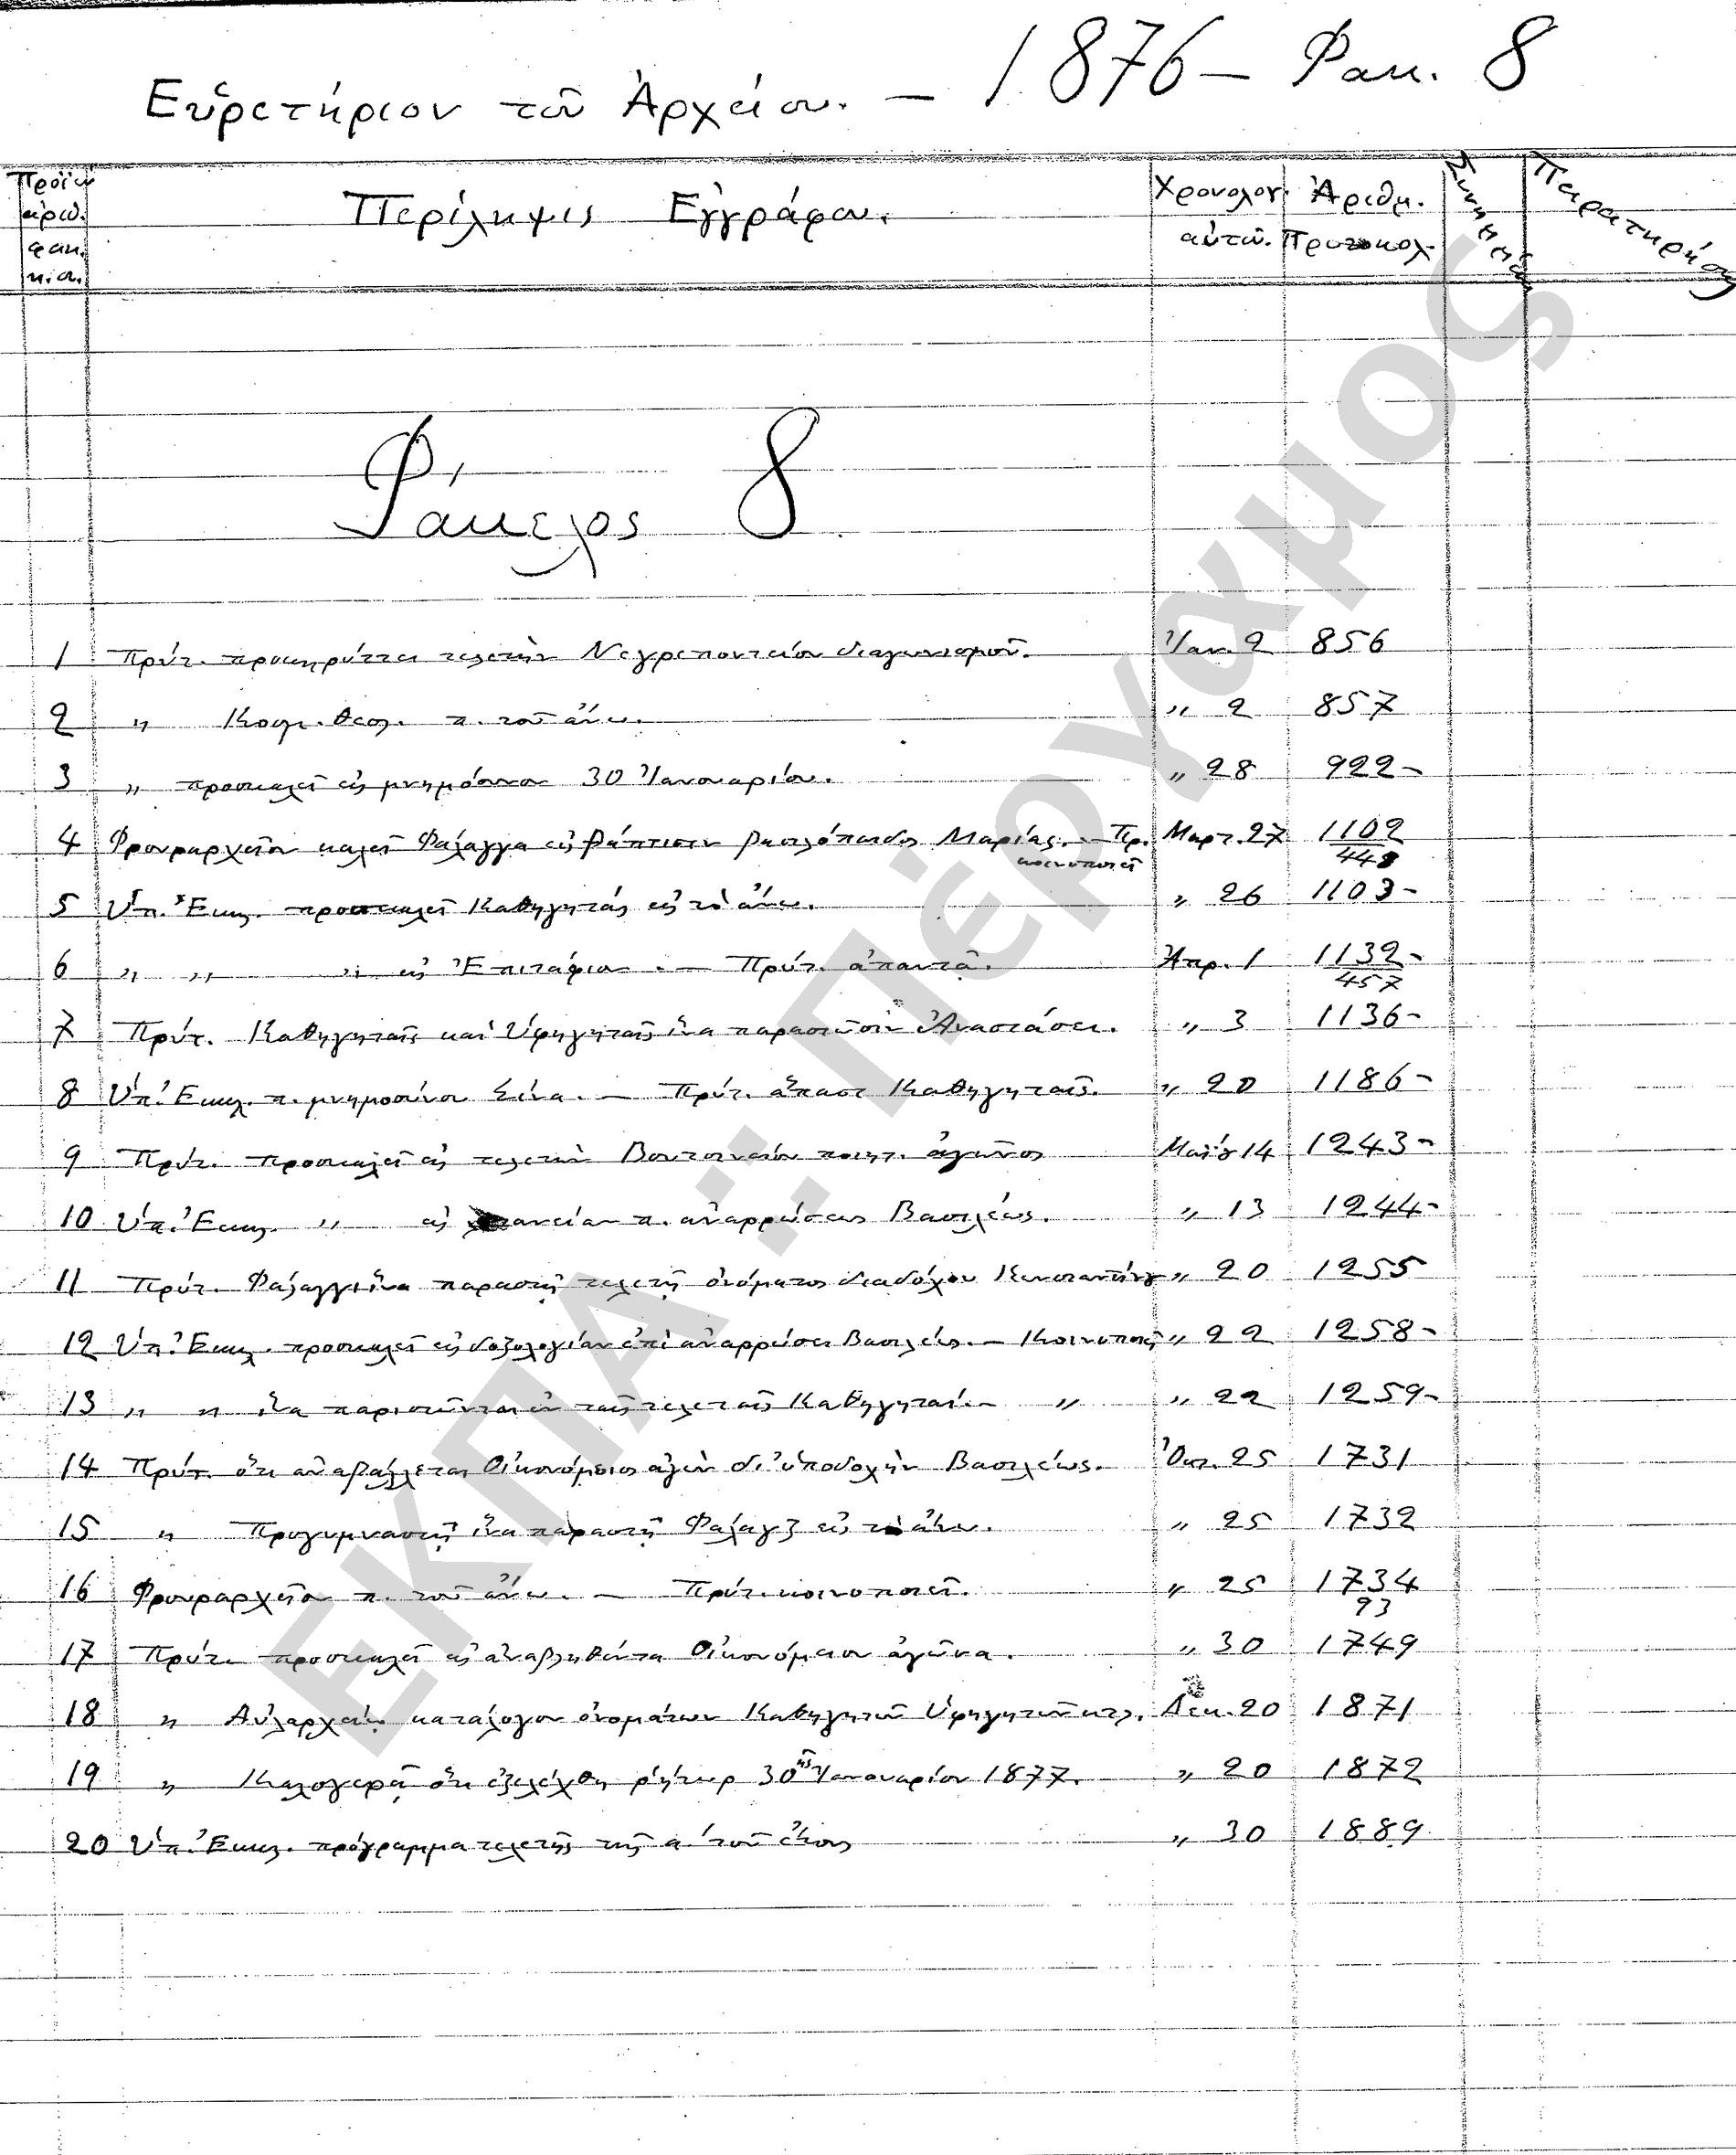 Εὑρετήριον τοῦ Ἀρχείου. — 1876 — Φακ. 8
Περίληψις Ἐγγράφου.
Χρονολογ. αὐτοῦ.
Ἀριθμ. Πρωτοκολ.
Φάκελος 8
1 Πρύτ. προκηρύττει τελετὴν Νεγρεποντείου διαγωνισμοῦ. Ἰαν. 2 856
2 〃 Κοσμ. Θεολ. π. τοῦ ἄνω. 〃 2 857
3 〃 προσκαλεῖ εἰς μνημόσυνον 30 Ἰανουαρίου. 〃 28 922-
4 Φρουραρχεῖον καλεῖ Φάλαγγα εἰς βάπτισιν βασιλόπαιδος Μαρίας. — Πρ. κοινοποιεῖ Μαρτ. 27 1102
448
5 Ὑπ. Ἐκκλ. προσκαλεῖ Καθηγητὰς εἰς τὸ ἄνω. 〃 26 1103-
6 〃 〃 〃 εἰς Ἐπιτάφιον. — Πρύτ. ἀπαντᾷ. Ἀπρ. 1 1132-
457
7 Πρύτ. Καθηγηταῖς καὶ Ὑφηγηταῖς ἵνα παραστῶσιν Ἀναστάσει. 〃 3 1136-
8 Ὑπ. Ἐκκλ. π. μνημοσύνου Σίνα. — Πρύτ. ἅπασι Καθηγηταῖς. 〃 20 1186-
9 Πρύτ. προσκαλεῖ εἰς τελετὴν Βουτσιναίου ποιητ. ἀγῶνος Μαΐου 14 1243-
10 Ὑπ. Ἐκκλ. 〃 εἰς π. ἀναρρώσεως Βασιλέως. 〃 13 1244-
11 Πρύτ. Φάλαγγι ἵνα παραστῇ τελετῇ ὀνόματος διαδόχου Κωνσταντίνου 〃 20 1255
12 Ὑπ. Ἐκκλ. προσκαλεῖ εἰς δοξολογίαν ἐπὶ ἀναρρώσει Βασιλέως. — Κοινοποιεῖ 〃 22 1258-
13 〃 〃 ἵνα παριστῶνται ἐν ταῖς τελεταῖς Καθηγηταί. — 〃 〃 22 1259-
14 Πρύτ. ὅτι ἀναβάλλεται Οἰκονόμειος ἀγὼν δι' ὑποδοχὴν Βασιλέως. Ὀκτ. 25 1731
15 〃 Προγυμναστῇ ἵνα παραστῇ Φάλαγξ εἰς τὸ ἄνω. 〃 25 1732
16 Φρουραρχεῖον π. τοῦ ἄνω. — Πρύτ. κοινοποιεῖ. 〃 25 1734
93
17 Πρύτ. προσκαλεῖ εἰς ἀναβληθέντα Οἰκονόμειον ἀγῶνα. 〃 30 1749
18 〃 Αὐλαρχείῳ κατάλογον ὀνομάτων Καθηγητῶν Ὑφηγητῶν κτλ. Δεκ. 20 1871
19 〃 Καλογερᾷ ὅτι ἐξελέχθη ῥήτωρ 30ῆς Ἰανουαρίου 1877. 〃 20 1872
20 Ὑπ. Ἐκκλ. πρόγραμμα τελετῆς τῆς α΄ τοῦ ἔτους 〃 30 1889
ΕΚΠΑ: Πέργαμος